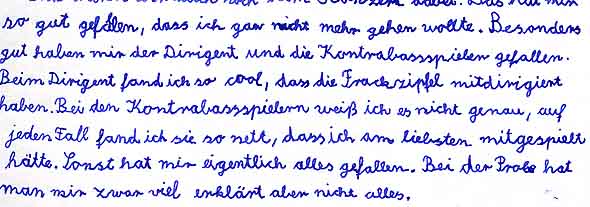 so gut gefallen, dass ich gar nicht mehr gehen wollte. Besonders
gut haben mir der Dirigent und die Kontrabassspielen gefallen.
Beim Dirigent fand ich so cool, dass die Frackzipfel mitdirigiert
haben. Bei den Kontrabassspielern weiß ich es nicht genau, auf
jeden Fall fand ich sie so nett, dass ich am liebsten mitgespielt
hätte. Sonst hat mir eigentlich alles gefallen. Bei der Probe hat
man mir zwar viel erklärt aber nicht alles.